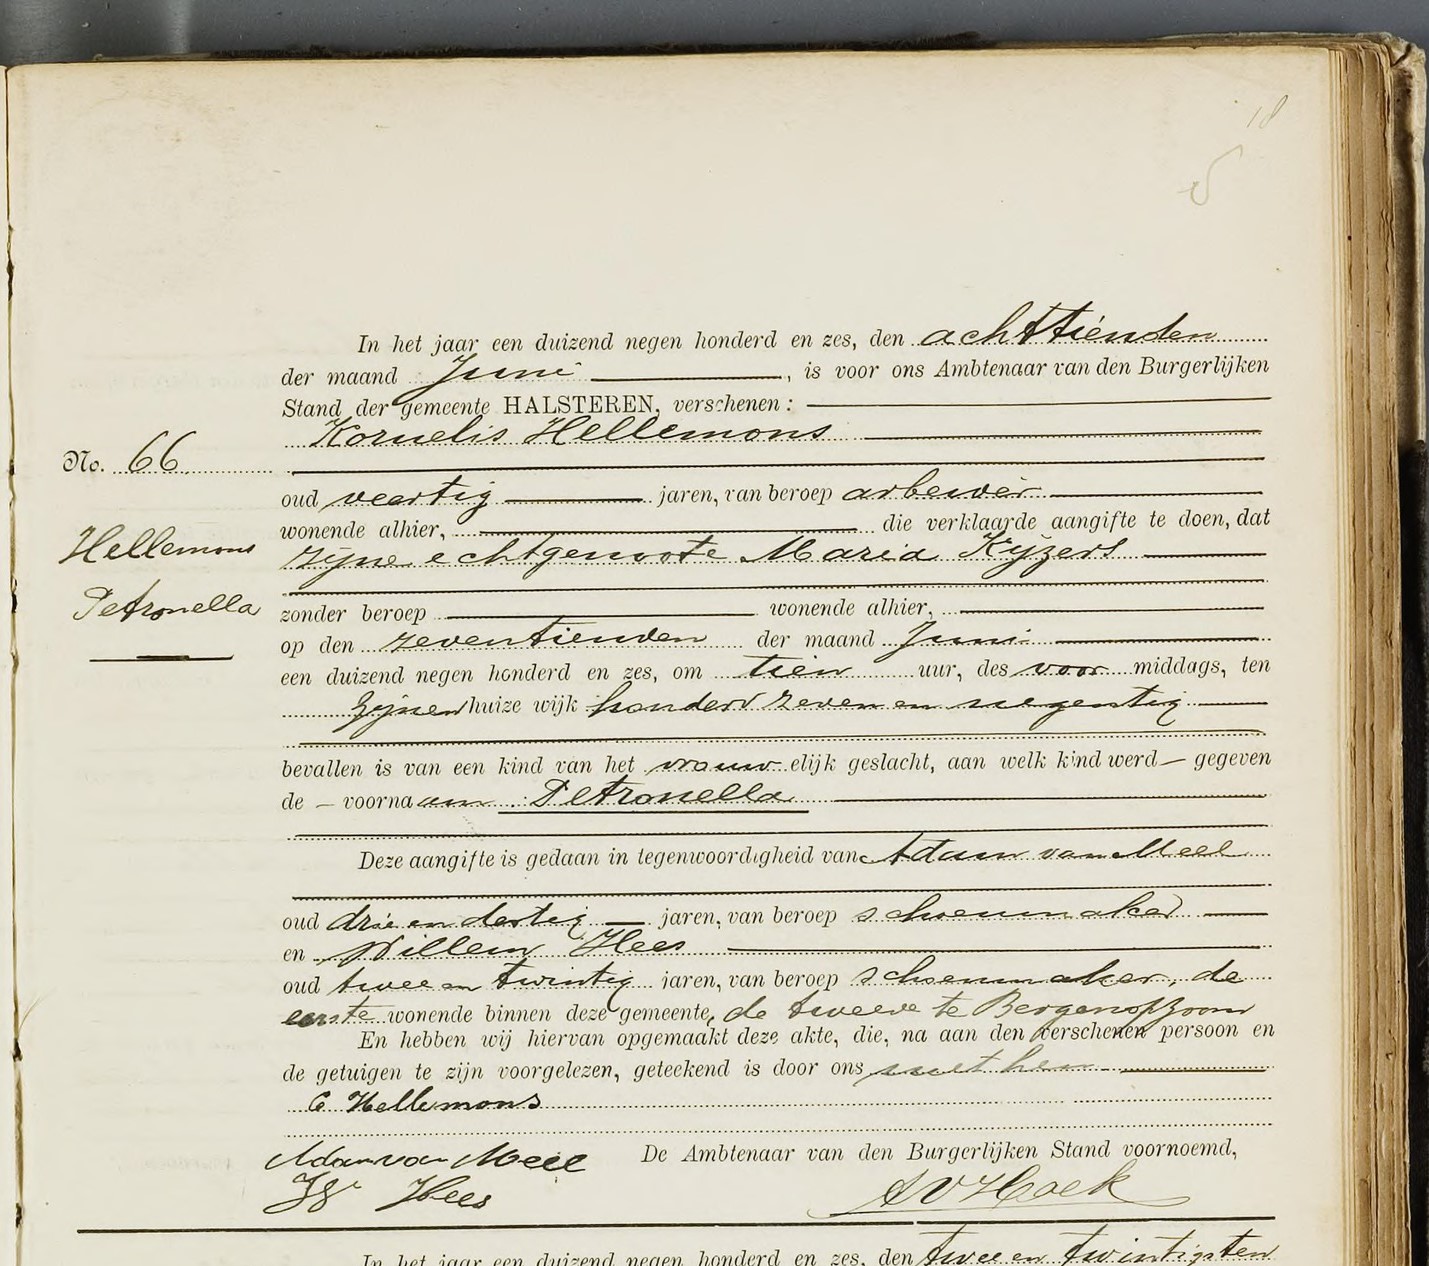 18
In het jaar een duizend negen honderd en zes, den achttienden
der maand Juni, is voor ons Ambtenaar van den Burgerlijken
Stand der gemeente HALSTEREN, verschenen:
Kornelis Hellemons
No. 66
oud veertig jaren, van beroep arbeider
wonende alhier, die verklaarde aangifte te doen, dat
Hellemons
zijne echtgenoote Maria Kijzers
Petronella
zonder beroep wonende alhier,
op den zeventienden der maand Juni
een duizend negen honderd en zes, om tien uur, des voor middags, ten
zijnen huize wijk honderd zeven en negentig
bevallen is van een kind van het vrouwelijk geslacht, aan welk kind werd — gegeven
de — voornaam Petronella
Deze aangifte is gedaan in tegenwoordigheid van Adam van Meel
oud drie en dertig jaren, van beroep schoenmaker
en Willem Hees
oud twee en twintig jaren, van beroep schoenmaker, de
eerste wonende binnen deze gemeente, de tweede te Bergen op Zoom
En hebben wij hiervan opgemaakt deze akte, die, na aan den verschenen persoon en
de getuigen te zijn voorgelezen, geteekend is door ons met hen
C Hellemons
Adam van Meel De Ambtenaar van den Burgerlijken Stand voornoemd,
W Hees A V Hoek
In het jaar een duizend negen honderd en zes, den twee en twintigsten